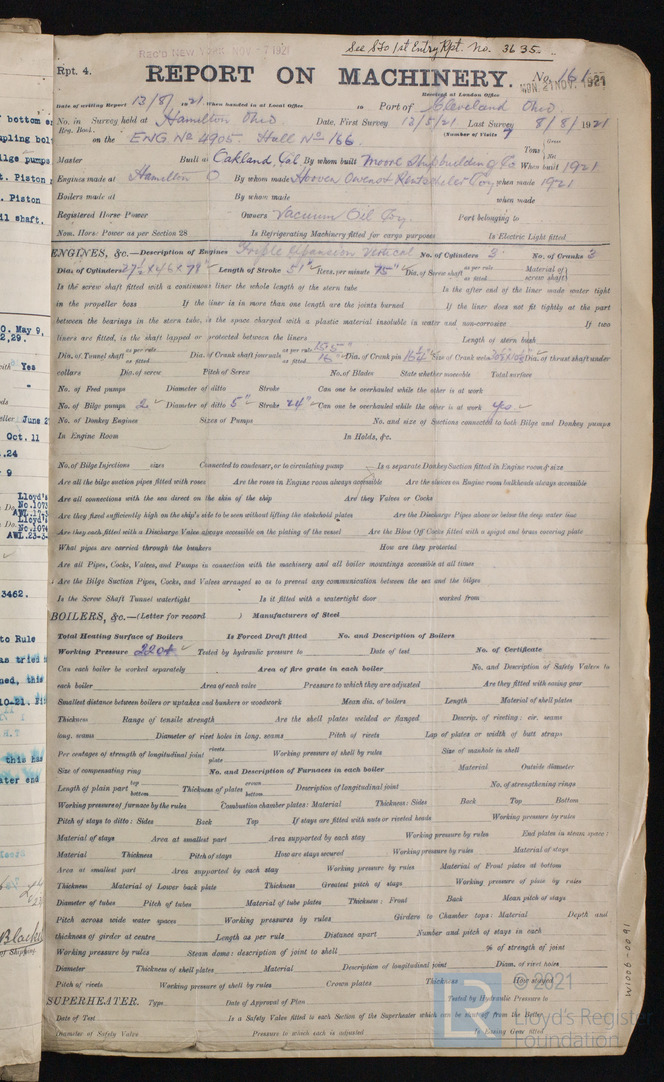 See S.F.o 1st Entry Rpt. No. 3635.
REC'D NEW YORK NOV -7 1921
Rpt. 4.
REPORT ON MACHINERY.
No. 161
MON. 21 NOV. 1921
Received at London Office
Date of writing Report 13/8/ 1921 When handed in at Local Office in Port of Cleveland Ohio.
No. in Survey held at Hamilton Ohio Date, First Survey 12/5/21 Last Survey 8/8/1921
Reg. Book. (Number of Visits 7
on the ENG No 4905 Hull No 166. Tons Gross Net
Master Built at Oakland, Cal By whom built Moore Shipbuilding Co When built 1921
Engines made at Hamilton O By whom made Hooven Owens & Rentschler Coy, when made 1921
Boilers made at By whom made when made
Registered Horse Power Owners Vacuum Oil Coy. Port belonging to
Nom. Horse Power as per Section 28 Is Refrigerating Machinery fitted for cargo purposes Is Electric Light fitted
ENGINES, &c.—Description of Engines Triple Expansion Vertical No. of Cylinders 3 No. of Cranks 3
Dia. of Cylinders Length of Stroke 51" Revs. per minute 75" Dia. of Screw shaft as per rule as fitted Material of screw shaft
Is the screw shaft fitted with a continuous liner the whole length of the stern tube Is the after end of the liner made water tight
in the propeller boss If the liner is in more than one length are the joints burned If the liner does not fit tightly at the part
between the bearings in the stern tube, is the space charged with a plastic material insoluble in water and non-corrosive If two
liners are fitted, is the shaft lapped or protected between the liners Length of stern bush
Dia. of Tunnel shaft as per rule as fitted Dia. of Crank shaft journals as per rule 15.5" as fitted 16" Dia. of Crank pin 16¼" Size of Crank webs Dia. of thrust shaft under
collars Dia. of screw Pitch of Screw No. of Blades State whether moveable Total surface
No. of Feed pumps Diameter of ditto Stroke Can one be overhauled while the other is at work
No. of Bilge pumps 2 Diameter of ditto 5" Stroke 24" Can one be overhauled while the other is at work yes
No. of Donkey Engines Sizes of Pumps No. and size of Suctions connected to both Bilge and Donkey pumps
In Engine Room In Holds, &c.
No. of Bilge Injections sizes Connected to condenser, or to circulating pump Is a separate Donkey Suction fitted in Engine room & size
Are all the bilge suction pipes fitted with roses Are the roses in Engine room always accessible Are the sluices on Engine room bulkheads always accessible
Are all connections with the sea direct on the skin of the ship Are they Valves or Cocks
Are they fixed sufficiently high on the ship's side to be seen without lifting the stokehold plates Are the Discharge Pipes above or below the deep water line
Are they each fitted with a Discharge Valve always accessible on the plating of the vessel Are the Blow Off Cocks fitted with a spigot and brass covering plate
What pipes are carried through the bunkers How are they protected
Are all Pipes, Cocks, Valves, and Pumps in connection with the machinery and all boiler mountings accessible at all times
Are the Bilge Suction Pipes, Cocks, and Valves arranged so as to prevent any communication between the sea and the bilges
Is the Screw Shaft Tunnel watertight Is it fitted with a watertight door worked from
BOILERS, &c.—(Letter for record ) Manufacturers of Steel
Total Heating Surface of Boilers Is Forced Draft fitted No. and Description of Boilers
Working Pressure 220# Tested by hydraulic pressure to Date of test No. of Certificate
Can each boiler be worked separately Area of fire grate in each boiler No. and Description of Safety Valves to
each boiler Area of each valve Pressure to which they are adjusted Are they fitted with easing gear
Smallest distance between boilers or uptakes and bunkers or woodwork Mean dia. of boilers Length Material of shell plates
Thickness Range of tensile strength Are the shell plates welded or flanged Descrip. of riveting: cir. seams
long. seams Diameter of rivet holes in long. seams Pitch of rivets Lap of plates or width of butt straps
Per centages of strength of longitudinal joint rivets plate Working pressure of shell by rules Size of manhole in shell
Size of compensating ring No. and Description of Furnaces in each boiler Material Outside diameter
Length of plain part top bottom Thickness of plates crown bottom Description of longitudinal joint No. of strengthening rings
Working pressure of furnace by the rules Combustion chamber plates: Material Thickness: Sides Back Top Bottom
Pitch of stays to ditto: Sides Back Top If stays are fitted with nuts or riveted heads Working pressure by rules
Material of stays Area at smallest part Area supported by each stay Working pressure by rules End plates in steam space:
Material Thickness Pitch of stays How are stays secured Working pressure by rules Material of stays
Area at smallest part Area supported by each stay Working pressure by rules Material of Front plates at bottom
Thickness Material of Lower back plate Thickness Greatest pitch of stays Working pressure of plate by rules
Diameter of tubes Pitch of tubes Material of tube plates Thickness: Front Back Mean pitch of stays
Pitch across wide water spaces Working pressures by rules Girders to Chamber tops: Material Depth and
thickness of girder at centre Length as per rule Distance apart Number and pitch of stays in each
Working pressure by rules Steam dome: description of joint to shell % of strength of joint
Diameter Thickness of shell plates Material Description of longitudinal joint Diam. of rivet holes
Pitch of rivets Working pressure of shell by rules Crown plates Thickness How stayed
SUPERHEATER. Type Date of Approval of Plan Tested by Hydraulic Pressure to
Date of Test Is a Safety Valve fitted to each Section of the Superheater which can be shut off from the Boiler
Diameter of Safety Valve Pressure to which each is adjusted Is Easing Gear fitted
© 2021
Lloyd's Register
Foundation
W1006-0091